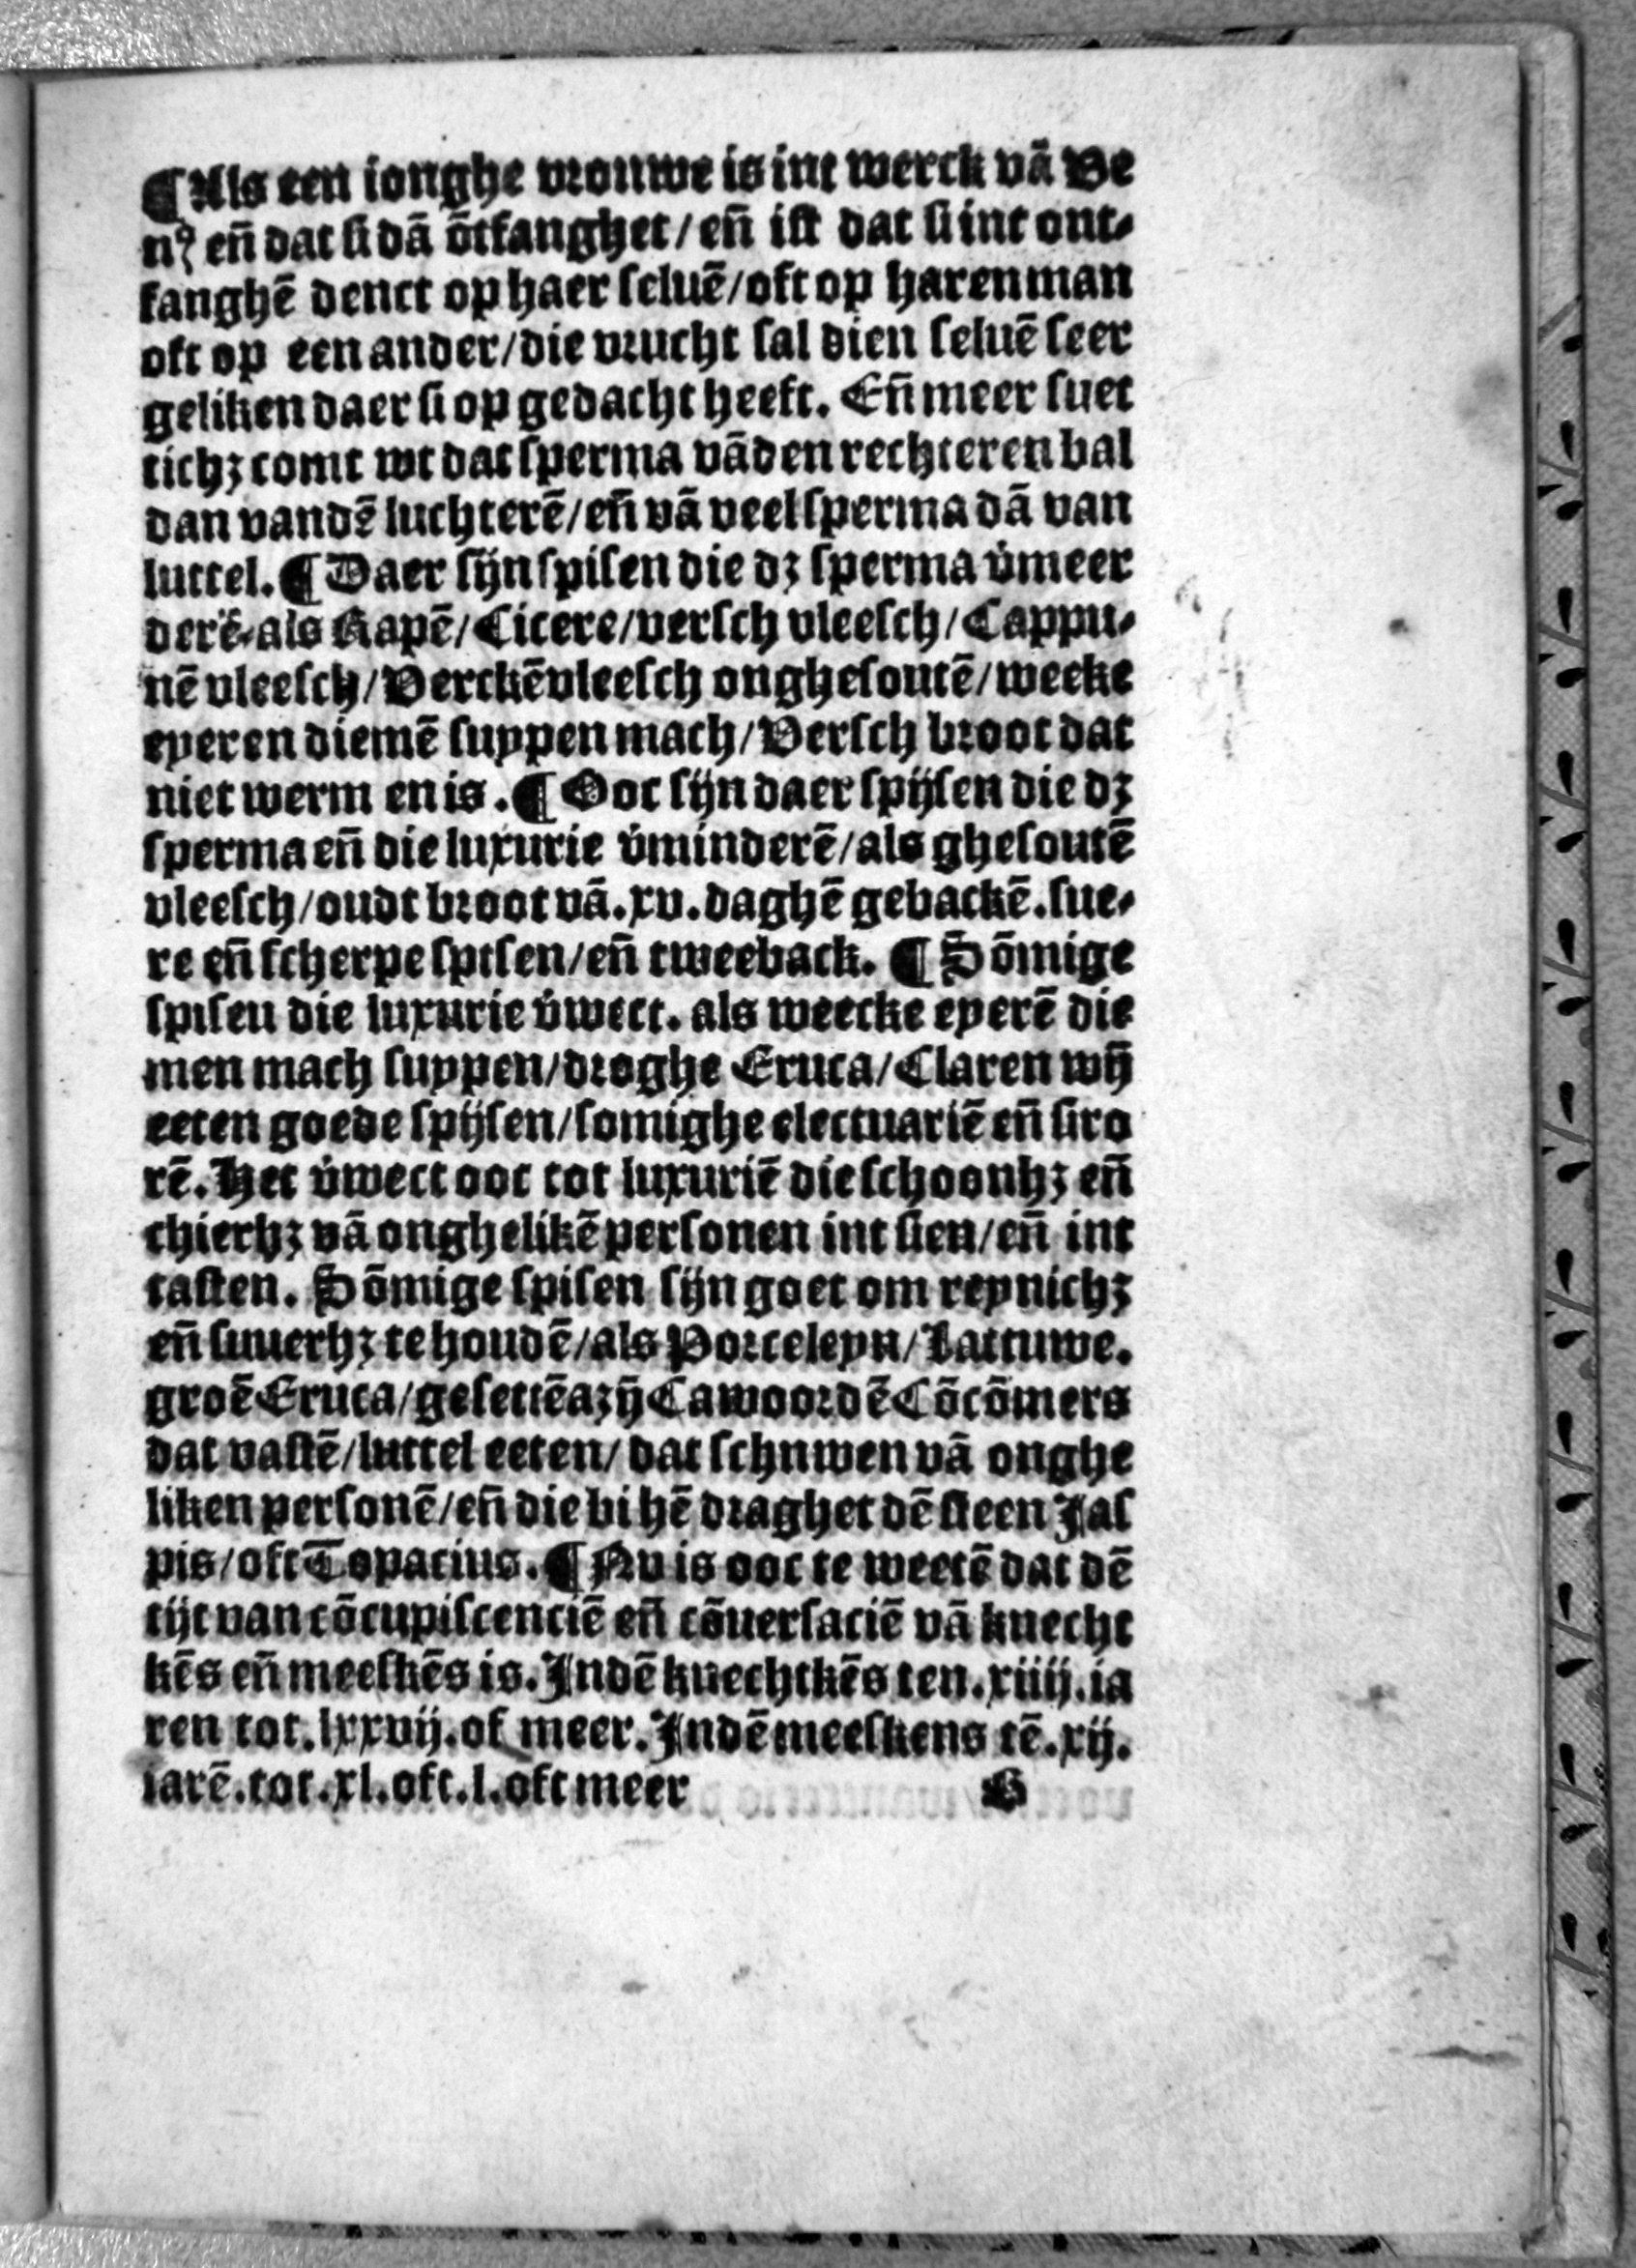 ¶Als een ionghe vrouwe is int werck vā Ve
nꝰ eñ dat si dā ōtfanghet/eñ ist dat si int ont⸗
fanghē denct op haer seluē/oft op haren man
oft op een ander/die vrucht sal dien seluē seer
geliken daer si op gedacht heeft. Eñ meer suet
ticħꝫ comt wt dat sperma vāden rechteren bal
dan vandē luchterē/eñ vā veel sperma dā van
luttel.¶Daer sijn spisen die dꝫ sperma v̄meer
derē⸗als Rapē/Cicere/versch vleesch/Cappu⸗
nē vleesch/Verckēvleesch onghesoutē/weeke
eyeren diemē suppen mach/Versch broot dat
niet werm en is.¶Ooc sijn daer spijsen die dꝫ
sperma eñ die luxurie v̄minderē/als ghesoutē
vleesch/oudt broot vā.xv.daghē gebackē.sue⸗
re eñ scherpe spisen/eñ tweeback. ¶Sōmige
spisen die luxurie v̄wect. als weecke eyerē die
men mach suppen/droghe Eruca/Claren wij̄
eeten goede spijsen/somighe electuariē eñ siro
rē. Het v̄wect ooc tot luxuriē die schoonhꝫ eñ
chierhꝫ vā onghelikē personen int sien/eñ int
tasten. Sōmige spisen sijn goet om reynichꝫ
eñ suuerhꝫ te houdē/als Porceleyn/Lattuwe.
groē Eruca/gesettē azij̄ Cawoordē Cōcōmers
dat vastē/luttel eeten/dat schuwen vā onghe
liken personē/eñ die bi hē draghet dē steen Jas
pis/oft Topacius.¶Nu is ooc te weetē dat dē
tijt van cōcupiscenciē eñ cōuersaciē vā knecht
kēs eñ meeskēs is.Jndē knechtkēs ten.xiiij.ia
ren tot.lxxvij.of meer.Jndē meeskens tē.xij.
iarē.tot.xl.oft.l.oft meer G